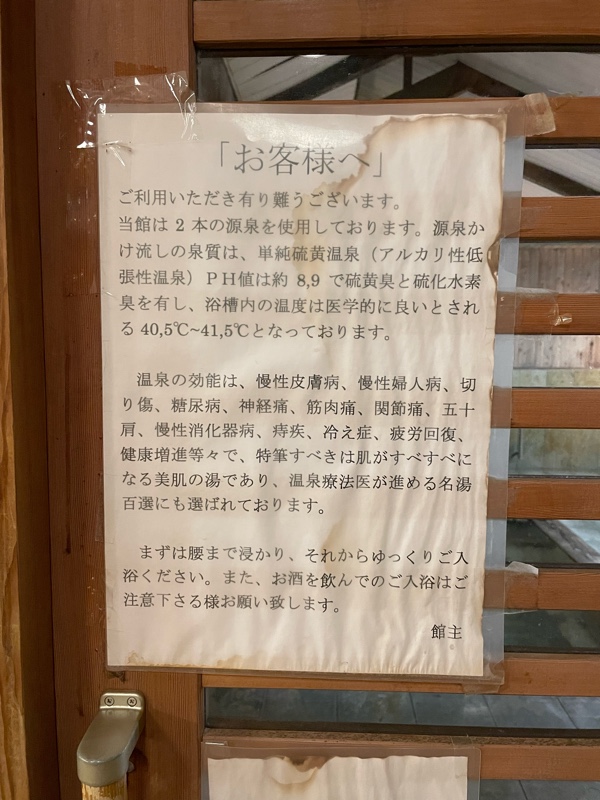 「お客様へ」
ご利用いただき有り難うございます。
当館は 2 本の源泉を使用しております。源泉か
け流しの泉質は、単純硫黄温泉（アルカリ性低
張性温泉）ＰＨ値は約 8,9 で硫黄臭と硫化水素
臭を有し、浴槽内の温度は医学的に良いとされ
る 40,5℃~41,5℃となっております。
温泉の効能は、慢性皮膚病、慢性婦人病、切
り傷、糖尿病、神経痛、筋肉痛、関節痛、五十
肩、慢性消化器病、痔疾、冷え症、疲労回復、
健康増進等々で、特筆すべきは肌がすべすべに
なる美肌の湯であり、温泉療法医が進める名湯
百選にも選ばれております。
まずは腰まで浸かり、それからゆっくりご入
浴ください。また、お酒を飲んでのご入浴はご
注意下さる様お願い致します。
館主